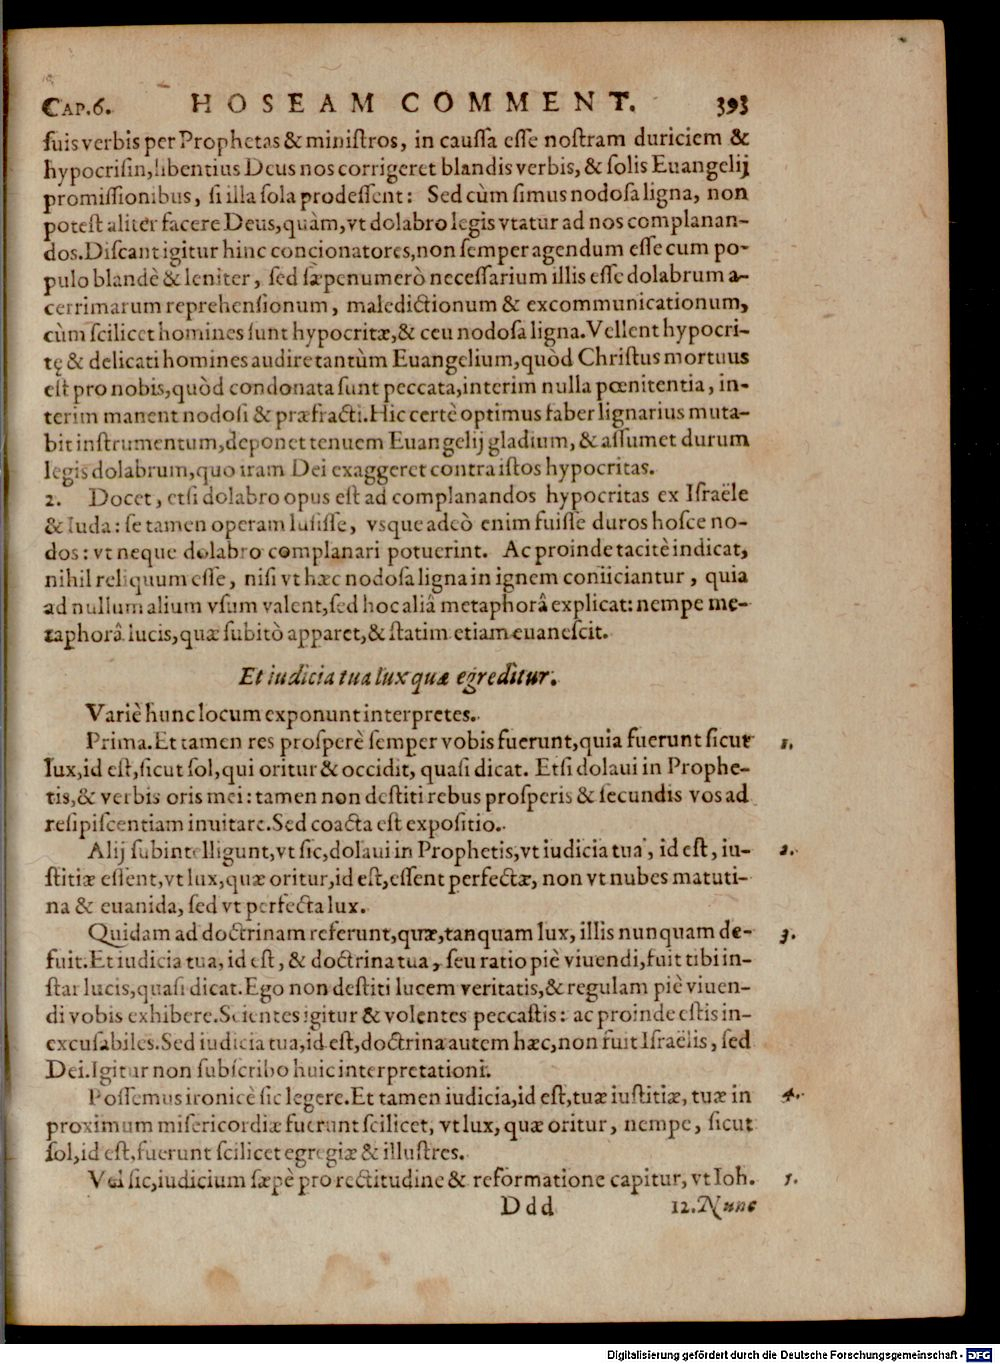 CAP.6. HOSEAM COMMENT. 393
ſuis verbis per Prophetas & miniſtros, in cauſſa eſſe noſtram duriciem &
hypocriſin, libentius Deus nos corrigeret blandis verbis, & ſolis Euangelij
promiſſionibus, ſi illa ſola prodeſſent: Sed cùm ſimus nodoſa ligna, non
poteſt aliter facere Deus, quàm, vt dolabro legis vtatur ad nos complanan-
dos. Diſcant igitur hinc concionatores, non ſemper agendum eſſe cum po-
pulo blandè & leniter, ſed ſæpenumerò neceſſarium illis eſſe dolabrum a-
cerrimarum reprehenſionum, maledictionum & excommunicationum,
cùm ſcilicet homines ſunt hypocritæ, & ceu nodoſa ligna. Vellent hypocri-
tę & delicati homines audire tantùm Euangelium, quòd Chriſtus mortuus
eſt pro nobis, quòd condonata ſunt peccata, interim nulla pœnitentia, in-
terim manent nodoſi & præfracti. Hic certè optimus faber lignarius muta-
bit inſtrumentum, deponet tenuem Euangelij gladium, & aſſumet durum
legis dolabrum, quo iram Dei exaggeret contra iſtos hypocritas.
2. Docet, etſi dolabro opus eſt ad complanandos hypocritas ex Iſraële
& Iuda: ſe tamen operam luſiſſe, vsque adeò enim fuiſſe duros hoſce no-
dos: vt neque dolabro complanari potuerint. Ac proinde tacitè indicat,
nihil reliquum eſſe, niſi vt hæc nodoſa ligna in ignem coniiciantur, quia
ad nullum alium vſum valent, ſed hoc aliâ metaphorâ explicat: nempe me-
taphorâ lucis, quæ ſubitò apparet, & ſtatim etiam euaneſcit.
Et iudicia tua lux quæ egreditur.
Variè hunc locum exponunt interpretes.
Prima. Et tamen res proſperè ſemper vobis fuerunt, quia fuerunt ſicut 1.
lux, id eſt, ſicut ſol, qui oritur & occidit, quaſi dicat. Etſi dolaui in Prophe-
tis, & verbis oris mei: tamen non deſtiti rebus proſperis & ſecundis vos ad
reſipiſcentiam inuitare. Sed coacta eſt expoſitio.
Alij ſubintelligunt, vt ſic, dolaui in Prophetis, vt iudicia tua, id eſt, iu- 2.
ſtitiæ eſſent, vt lux, quæ oritur, id eſt, eſſent perfectæ, non vt nubes matuti-
na & euanida, ſed vt perfecta lux.
Quidam ad doctrinam referunt, quæ, tanquam lux, illis nunquam de- 3.
fuit. Et iudicia tua, id eſt, & doctrina tua, ſeu ratio piè viuendi, fuit tibi in-
ſtar lucis, quaſi dicat. Ego non deſtiti lucem veritatis, & regulam piè viuen-
di vobis exhibere. Scientes igitur & volentes peccaſtis: ac proinde eſtis in-
excuſabiles. Sed iudicia tua, id eſt, doctrina autem hæc, non fuit Iſraëlis, ſed
Dei. Igitur non ſubſcribo huic interpretationi.
Poſſemus ironicè ſic legere. Et tamen iudicia, id eſt, tuæ iuſtitiæ, tuæ in 4.
proximum miſericordiæ fuerunt ſcilicet, vt lux, quæ oritur, nempe, ſicut
ſol, id eſt, fuerunt ſcilicet egregiæ & illuſtres.
Vel ſic, iudicium ſæpè pro rectitudine & reformatione capitur, vt Ioh. 5.
Ddd 12. Nunc
Digitalisierung gefördert durch die Deutsche Forschungsgemeinschaft - DFG